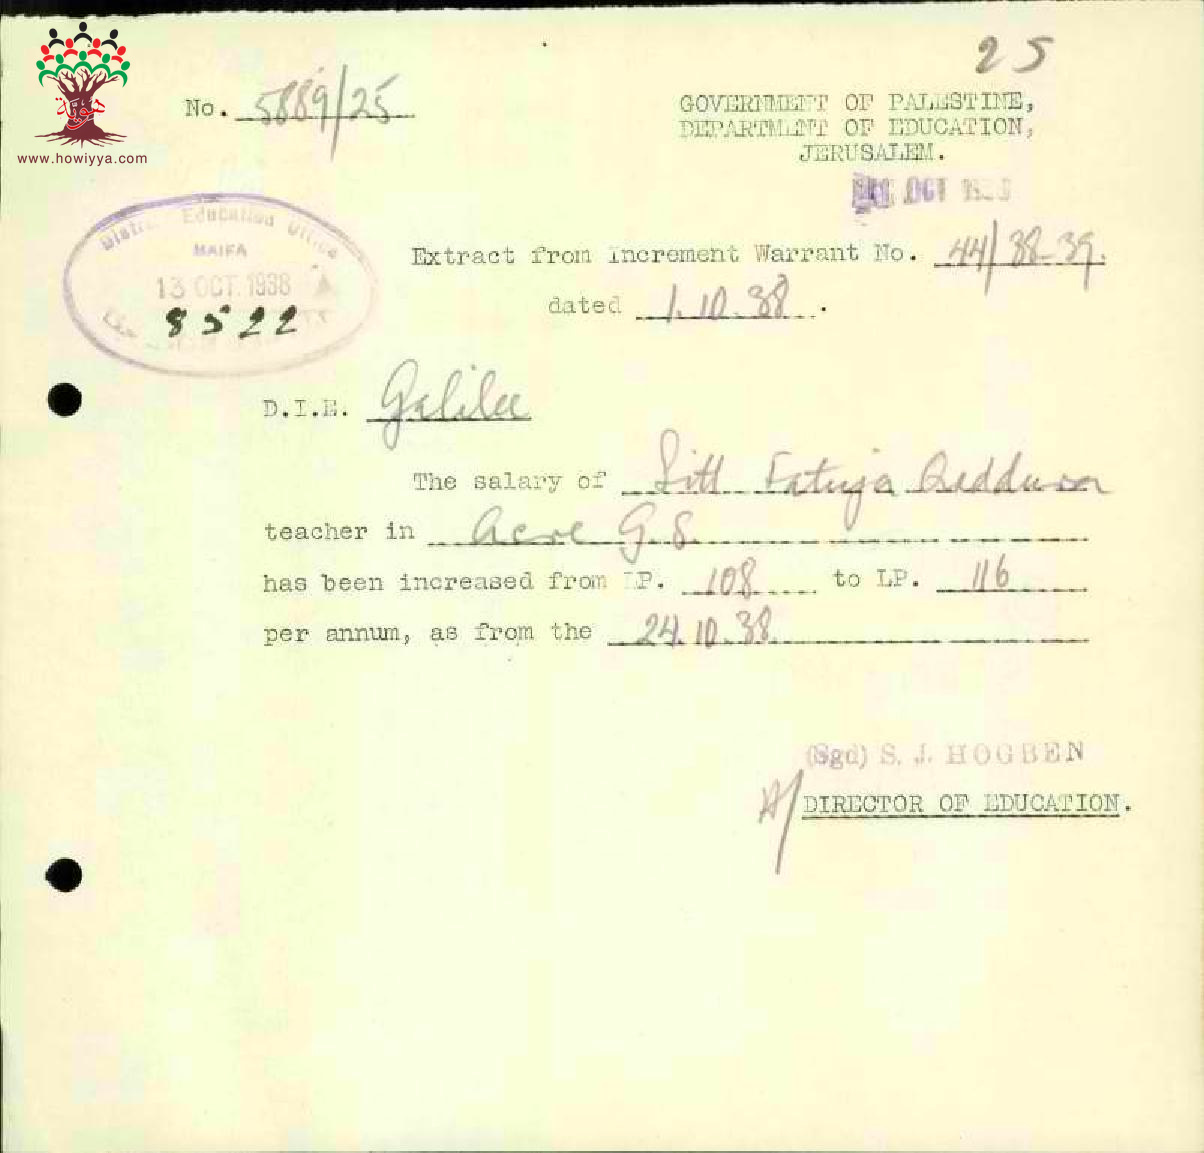 25
No. 5889/25
GOVERNMENT OF PALESTINE,
DEPARTMENT OF EDUCATION,
JERUSALEM.
OCT
هوية
www.howiyya.com
District Education Office
HAIFA
13 OCT. 1938
8522
Extract from Increment Warrant No. 44/38-39.
dated 1.10.38.
D.I.E. Galilee
The salary of Sitt Fatuja
teacher in Acre G.S.
has been increased from LP. 108 to LP. 116
per annum, as from the 24.10.38.
(Sgd) S. J. HOGBEN
A/DIRECTOR OF EDUCATION.